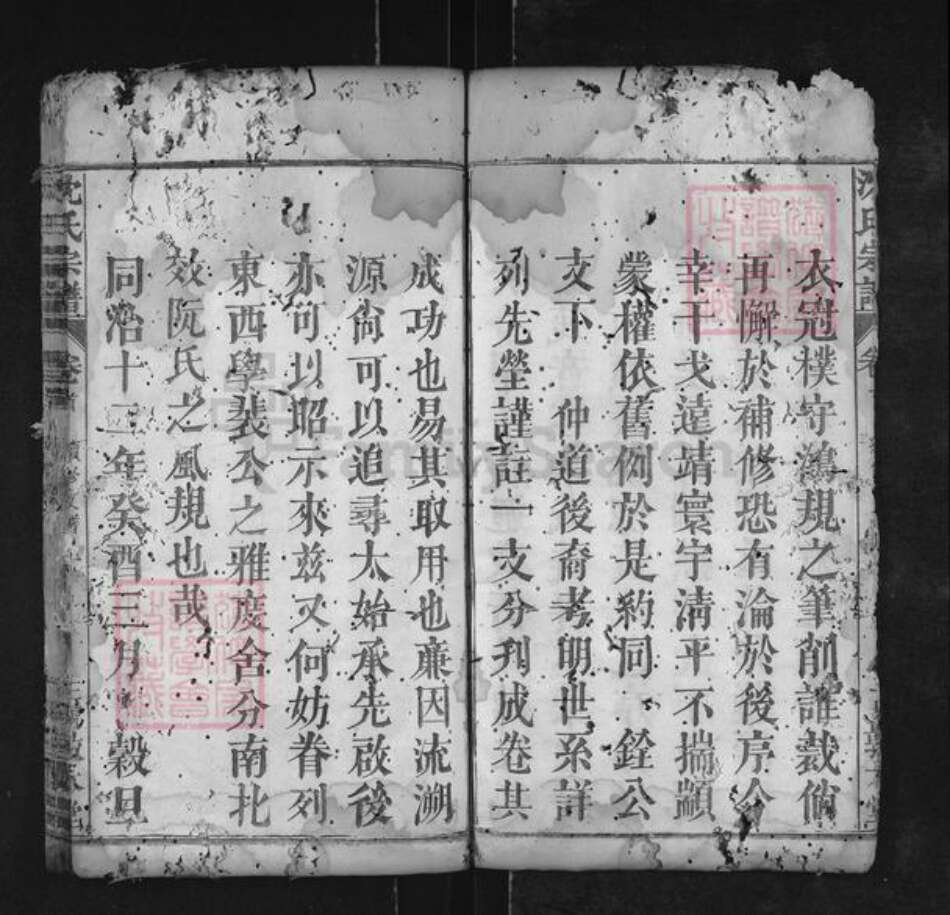 衣冠樸守鴻規之筆削誰裁倘
再懈於補修恐有淪於後序今
幸干戈遠靖寰宇清平不揣顓
蒙權依舊例於是約同 銓公
支下 仲道後裔考明世系詳
列先塋謹註一支分列成卷其
成功也易其取用也亷因流溯
源尙可以追尋太始承先啟後
亦可以昭示來兹又何妨眷列
東西學裴公之雅度舍分南北
效阮氏之風規也哉
同治十二年癸酉三月 穀旦
沈氏宗譜
卷首
FamilySearch